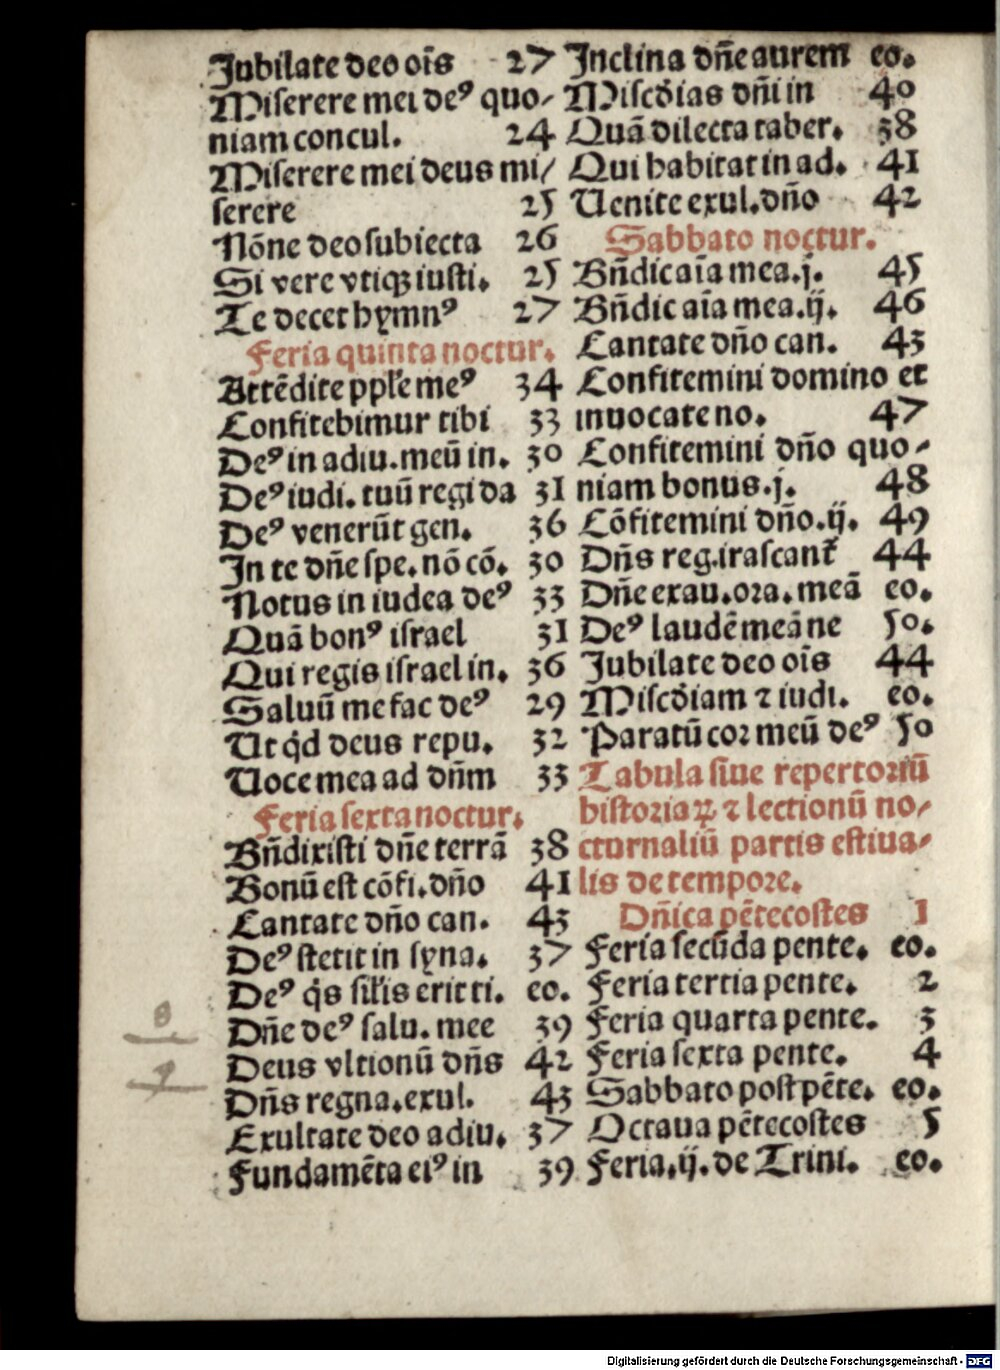 Jubilate deo oīs 27
Miserere mei deꝰ quo-
niam concul. 24
Miserere mei deus mi/
serere 25
Nōne deo subiecta 26
Si vere vtiqꝫ iusti. 25
Te decet hymnꝰ 27
Feria quinta noctur.
Attēdite pple meꝰ 34
Confitebimur tibi 33
Deꝰ in adiu. meū in. 30
Deꝰ iudi. tuū regi da 31
Deꝰ venerūt gen. 36
In te dn̄e spe. nō cō. 30
Notus in iudea deꝰ 33
Quā bonꝰ israel 31
Qui regis israel in. 36
Saluū me fac deꝰ 29
Ut qd deus repu. 32
Uoce mea ad dn̄m 33
Feria sexta noctur.
Bn̄dixisti dn̄e terrā 38
Bonū est cōfi. dn̄o 41
Cantate dn̄o can. 43
Deꝰ stetit in syna. 37
Deꝰ qs silis erit ti. eo.
Dn̄e deꝰ salu. mee 39
Deus vltionū dn̄s 42
Dn̄s regna. exul. 43
Exultate deo adiu. 37
Fundamēta eiꝰ in 39
Inclina dn̄e aurem eo.
Miscd̄ias dn̄i in 40
Quā dilecta taber. 38
Qui habitat in ad. 41
Uenite exul. dn̄o 42
Sabbato noctur.
Bn̄dic aīa mea. j. 45
Bn̄dic aīa mea. ij. 46
Cantate dn̄o can. 43
Confitemini domino et
inuocate no. 47
Confitemini dn̄o quo-
niam bonus. j. 48
Cōfitemini dn̄o. ij. 49
Dn̄s reg. irascant̄ 44
Dn̄e exau. ora. meā eo.
Deꝰ laudē meā ne 50.
Jubilate deo oīs 44
Miscd̄iam ⁊ iudi. eo.
Paratū cor meū deꝰ 50
Tabula siue repertoriū
historiaꝝ ⁊ lectionū no-
cturnaliū partis estiua-
lis de tempore.
Dn̄ica pētecostes 1
Feria secūda pente. eo.
Feria tertia pente. 2
Feria quarta pente. 3
Feria sexta pente. 4
Sabbato post pēte. eo.
Octaua pētecostes 5
Feria. ij. de Trini. eo.
8
9
Digitalisierung gefördert durch die Deutsche Forschungsgemeinschaft - DFG